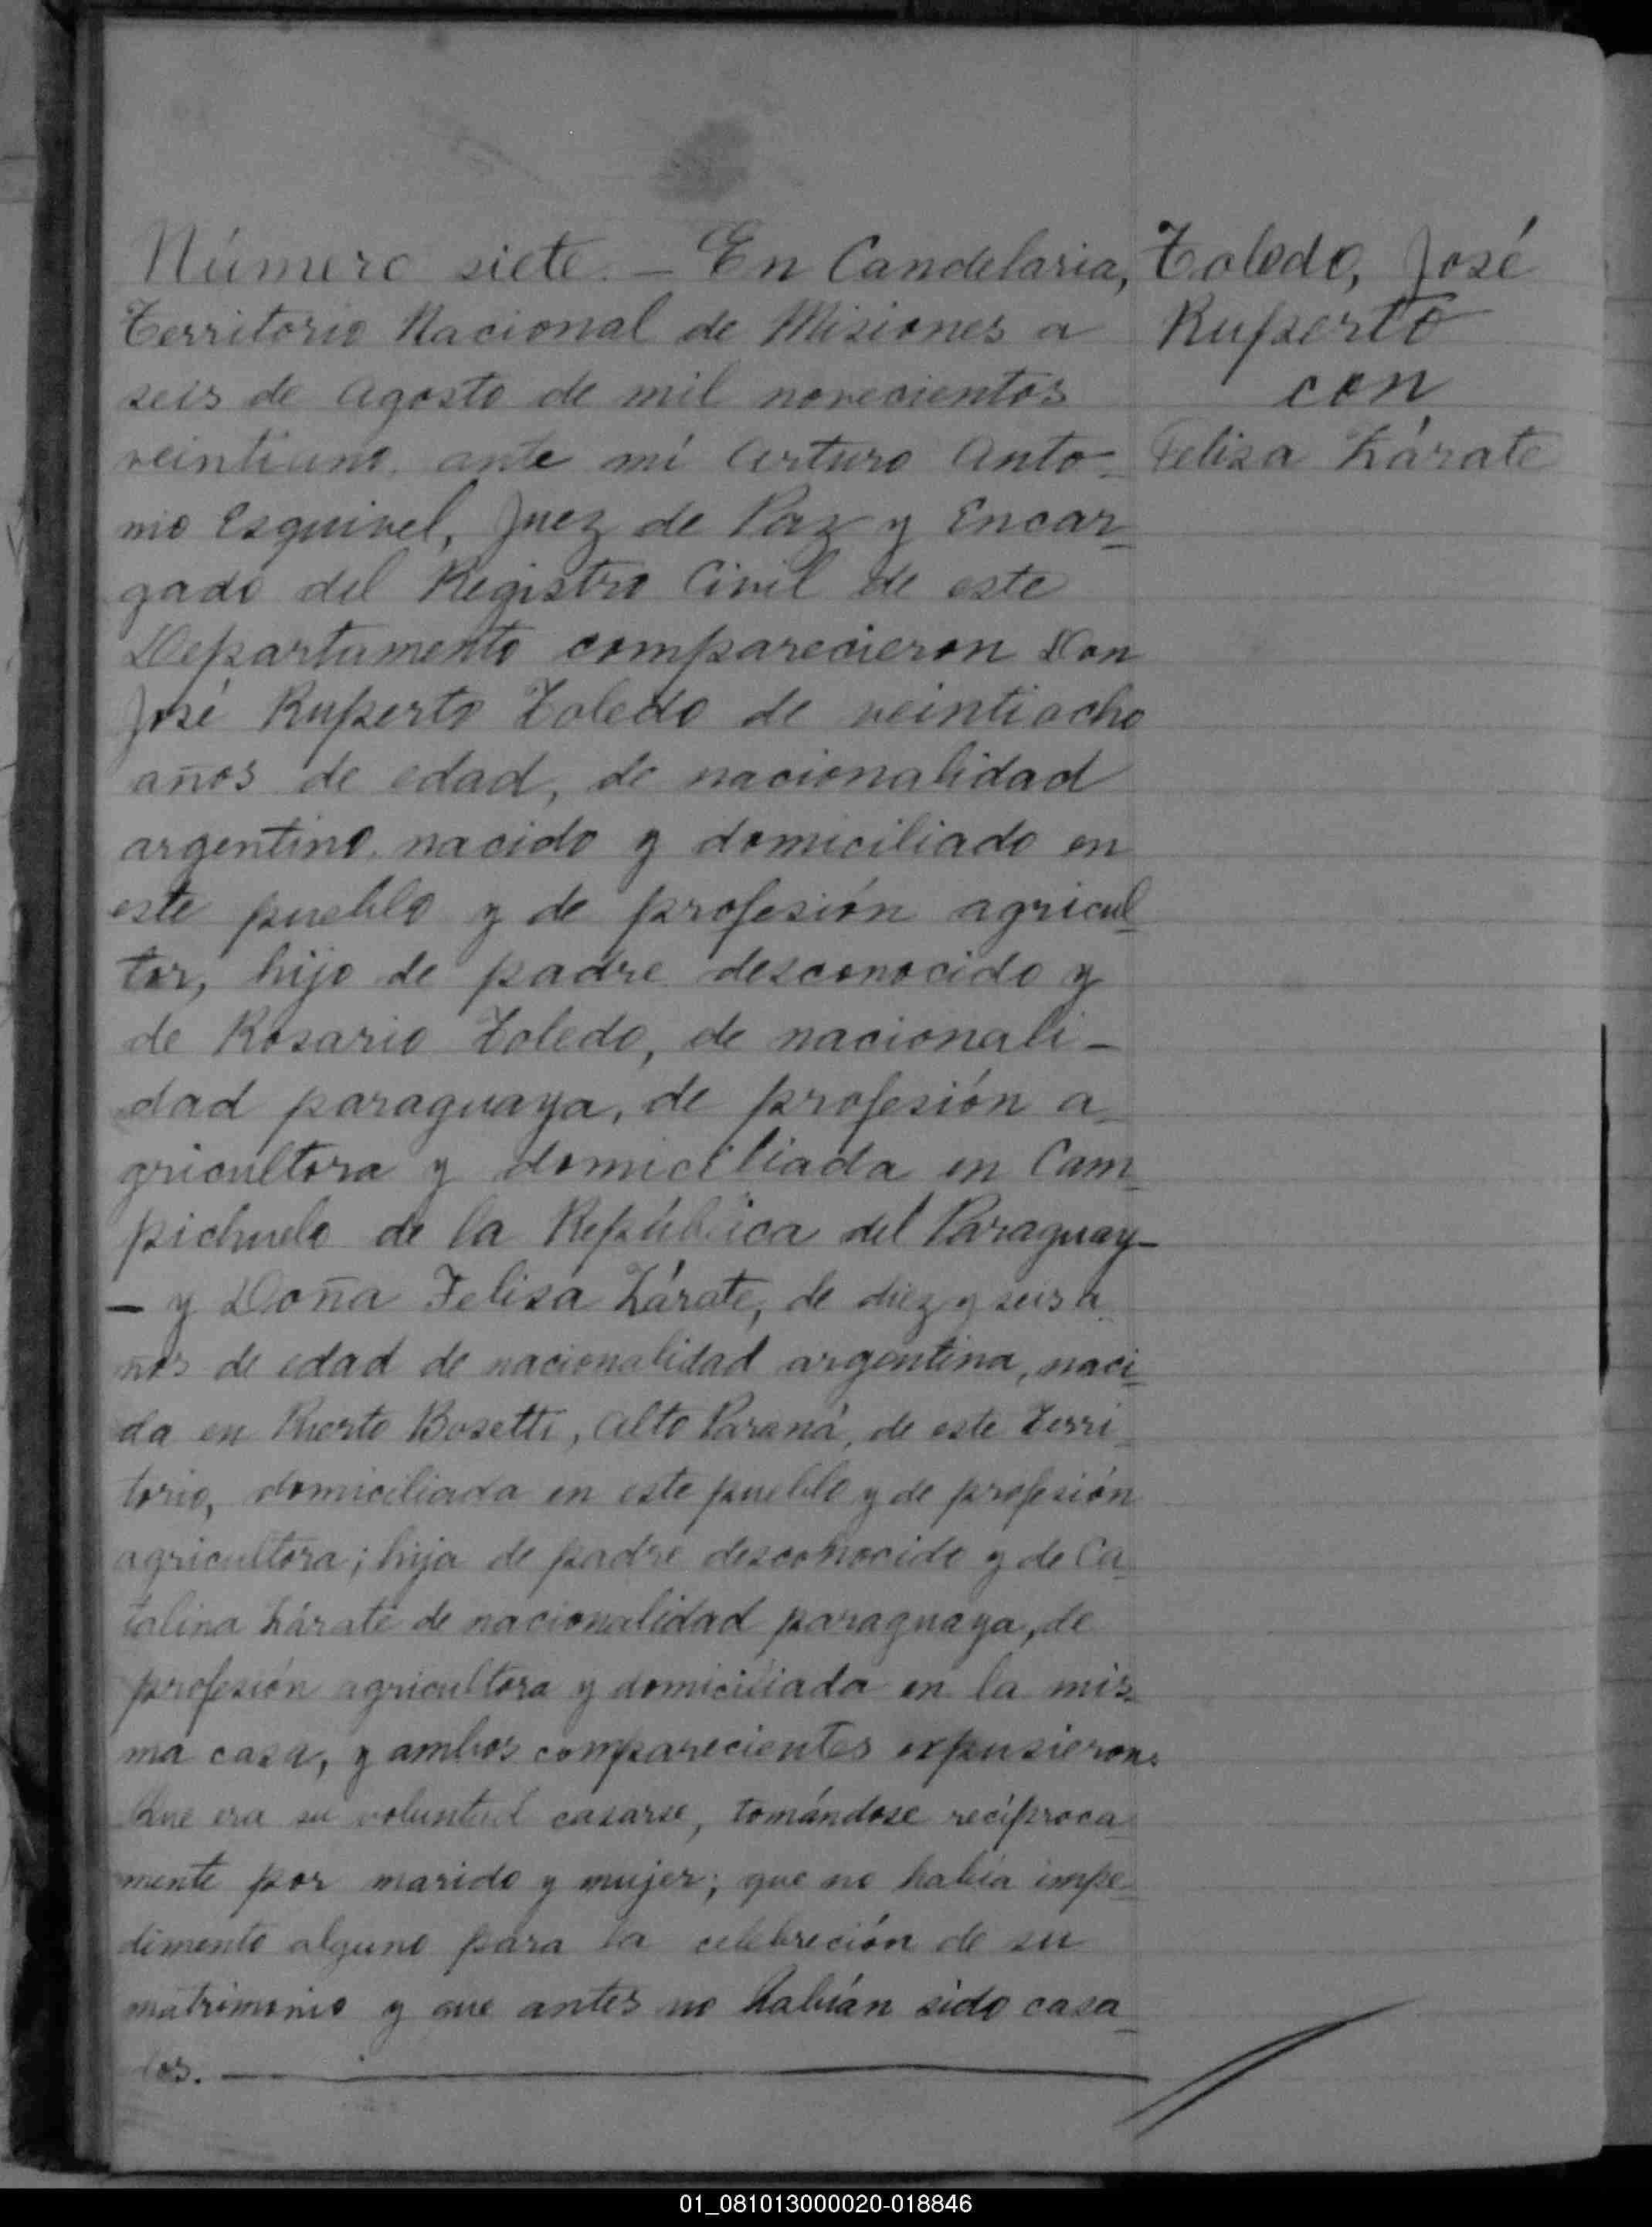 Número siete. — En Candelaria,
Territorio Nacional de Misiones a
seis de Agosto de mil novecientos
veintiuno. ante mí Arturo Anto-
nio Esquivel, Juez de Paz y Encar-
gado del Registro Civil de este
Departamento comparecieron Don
José Ruperto Toledo de veintiocho
años de edad, de nacionalidad
argentino. nacido y domiciliado en
este pueblo y de profesión agricul-
tor, hijo de padre desconocido y
de Rosario Toledo, de nacionali-
dad paraguaya, de profesión a-
gricultora y domiciliada en Cam-
pichuelo de la República del Paraguay-
- y Doña Felisa Zárate, de diez y seis a-
ños de edad de nacionalidad argentina, naci-
da en Puerto Bosetti, Alto Paraná, de este Terri-
torio, domiciliada en este pueblo y de profesión
agricultora; hija de padre desconocido y de Ca-
talina Zárate de nacionalidad paraguaya, de
profesión agricultora y domiciliada en la mis-
ma casa, y ambos comparecientes expusieron:
Que era su voluntad casarse, tomándose recíproca-
mente por marido y mujer; que no había impe-
dimento alguno para la celebreción de su
matrimonio y que antes no habían sido casa-
dos.
Toledo, José
Ruperto
con
Felisa Zárate
01_081013000020-018846